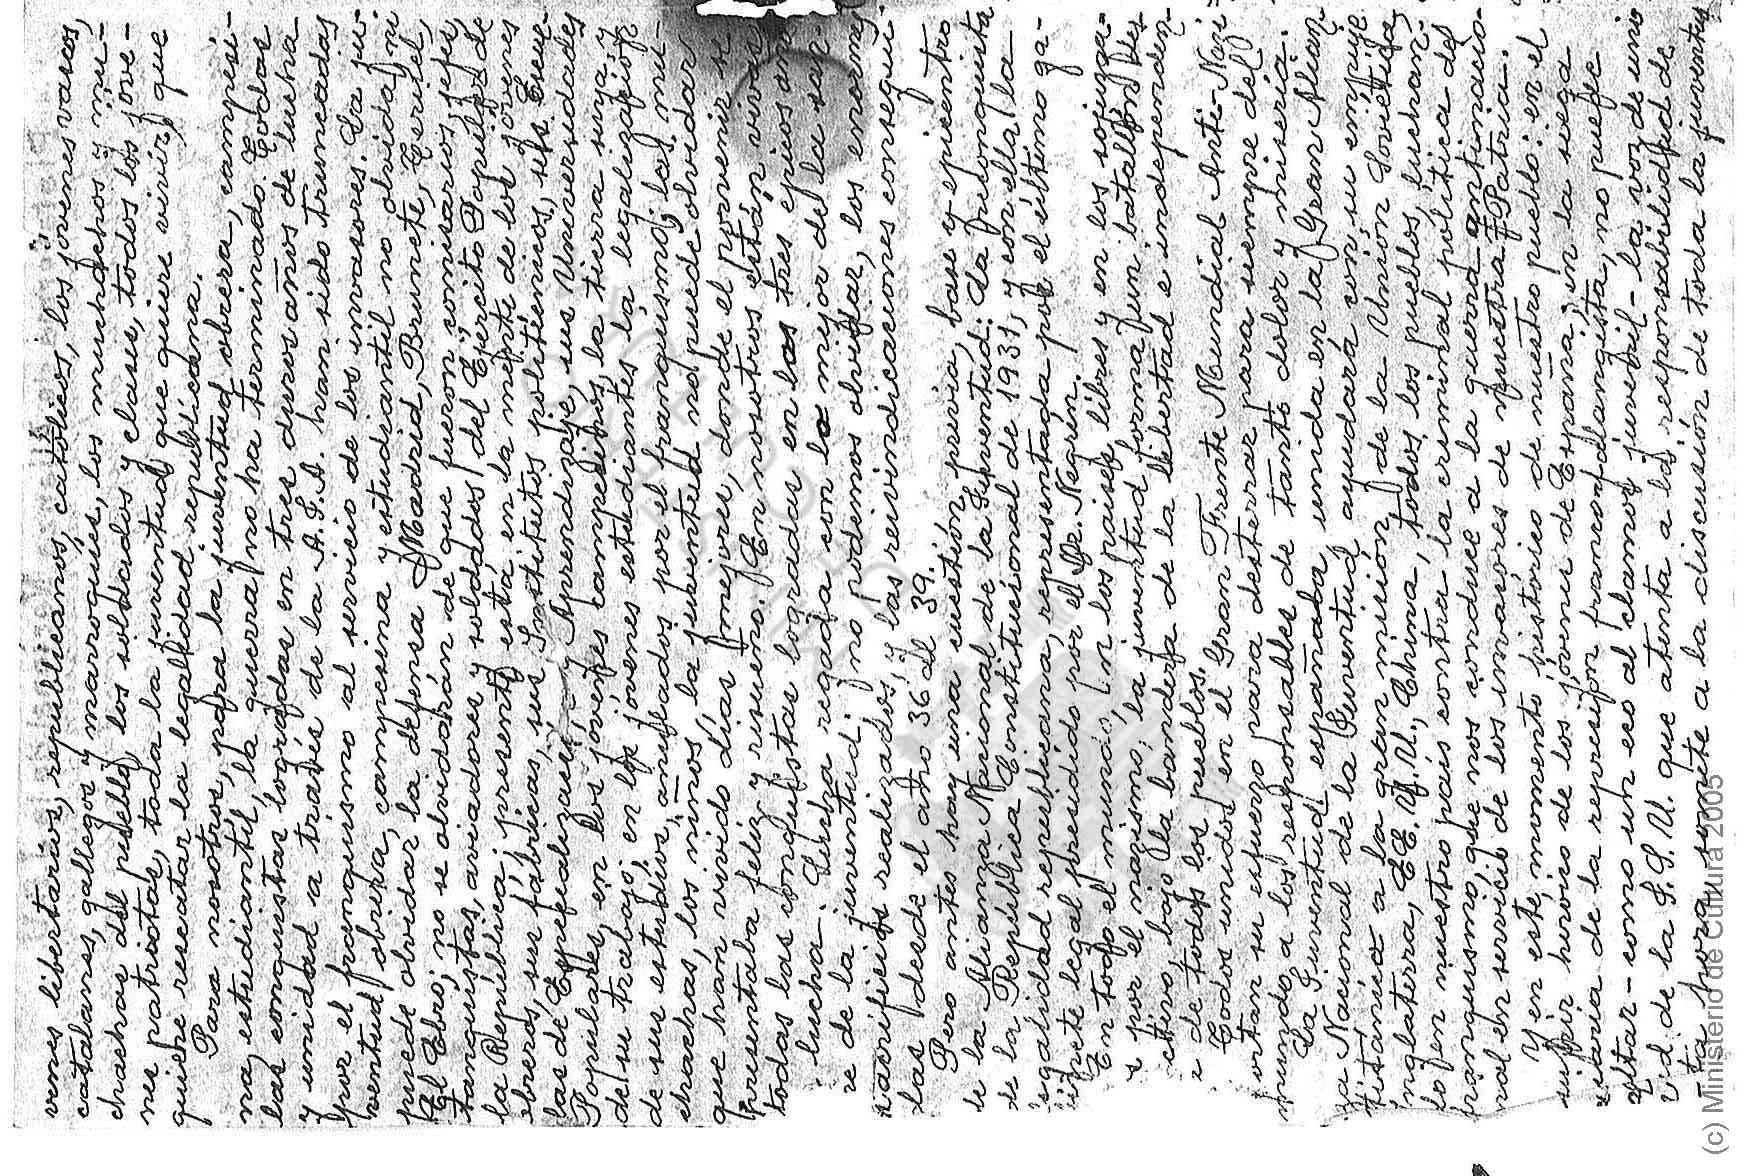 venes libertarios, republicanos, católicos, los jovenes vascos,
catalanes, gallegos y marroquíes, los muchachos y mu-
chachas del pueblo, los soldados y clases, todos los jove-
nes patriotas, toda la juventud que quiere vivir y que
quiere rescatar la legalidad republicana.
Para nosotros, para la juventud obrera, campesi-
na y estudiantil, la guerra no ha terminado. Todas
las conquistas logradas en tres duros años de lucha
y unidad a través de la A.J.A. han sido truncadas
por el franquismo al servicio de los invasores. La ju-
ventud obrera, campesina y estudiantil no olvida, ni
puede olvidar la defensa Madrid, Brunete, Teruel,
el Ebro; no se olvidarán de que fueron comisarios, jefes,
tanquistas, aviadores y soldados del Ejército Popular de
la República; presente está en la mente de los jóvenes
obreros, sus fábricas, sus Institutos politécnicos, sus Escue-
las de Especialización y Aprendizaje, sus Universidades
Populares, en los jóvenes campesinos, la tierra suya y
de su trabajo, en los jóvenes estudiantes la legalización
de sus estudios, anulados por el franquismo; las mu-
chachas, los niños, la juventud no puede olvidar
que han vivido días mejores, donde el porvenir se
presentaba feliz y risueño. En nosotros están vivas
todas las conquistas logradas en los tres epicos años
lucha. Lucha regada con lo mejor de la san-
re de la juventud; no podemos olvidar, los enormes
sacrificios realizados, y las reivindicaciones consegui
das desde el año 36 al 39.
Pero antes hay una cuestión previa, base y epicentro
de la Alianza Nacional de la Juventud: La Reconquista
de la República Constitucional de 1931, y con ella, la
legalidad republicana, representada por el último ga-
binete legal presidido por el Dr. Negrín.
En todo el mundo, en los paises libres y en los sojuzga-
s por el nazismo, la juventud forma un batallón des-
ctivo bajo la bandera de la libertad e independen-
e de todos los pueblos.
Todos unidos en el Gran Frente Mundial Anti-Nazi
ortan su esfuerzo para desterrar para siempre del
mundo a los responsables de tanto dolor y miseria.
La Juventud española, unida en la Gran Alian-
za Nacional de la Juventud ayudará con su empuje
titánico a la gran misión de la Unión Soviética,
Inglaterra, EE.U.U., China, todos los pueblos, luchan-
do en nuestro país contra la criminal política del
franquismo, que nos conduce a la guerra antinacio-
nal en servicio de los invasores de nuestra Patria.
Y en este momento histórico de nuestro pueblo: en el
sufrir heroico de los jóvenes de España; en la ciega
storia de la represión franco-falangista, no puede
altar - como un eco al clamor juvenil - la voz de uni
dad de la J.S.U. que atenta a la responsabilidad de
esta hora somete a la discusión de toda la juventud
(c) Ministerio de Cultura 2005
MINISTERIO
DE CULTURA